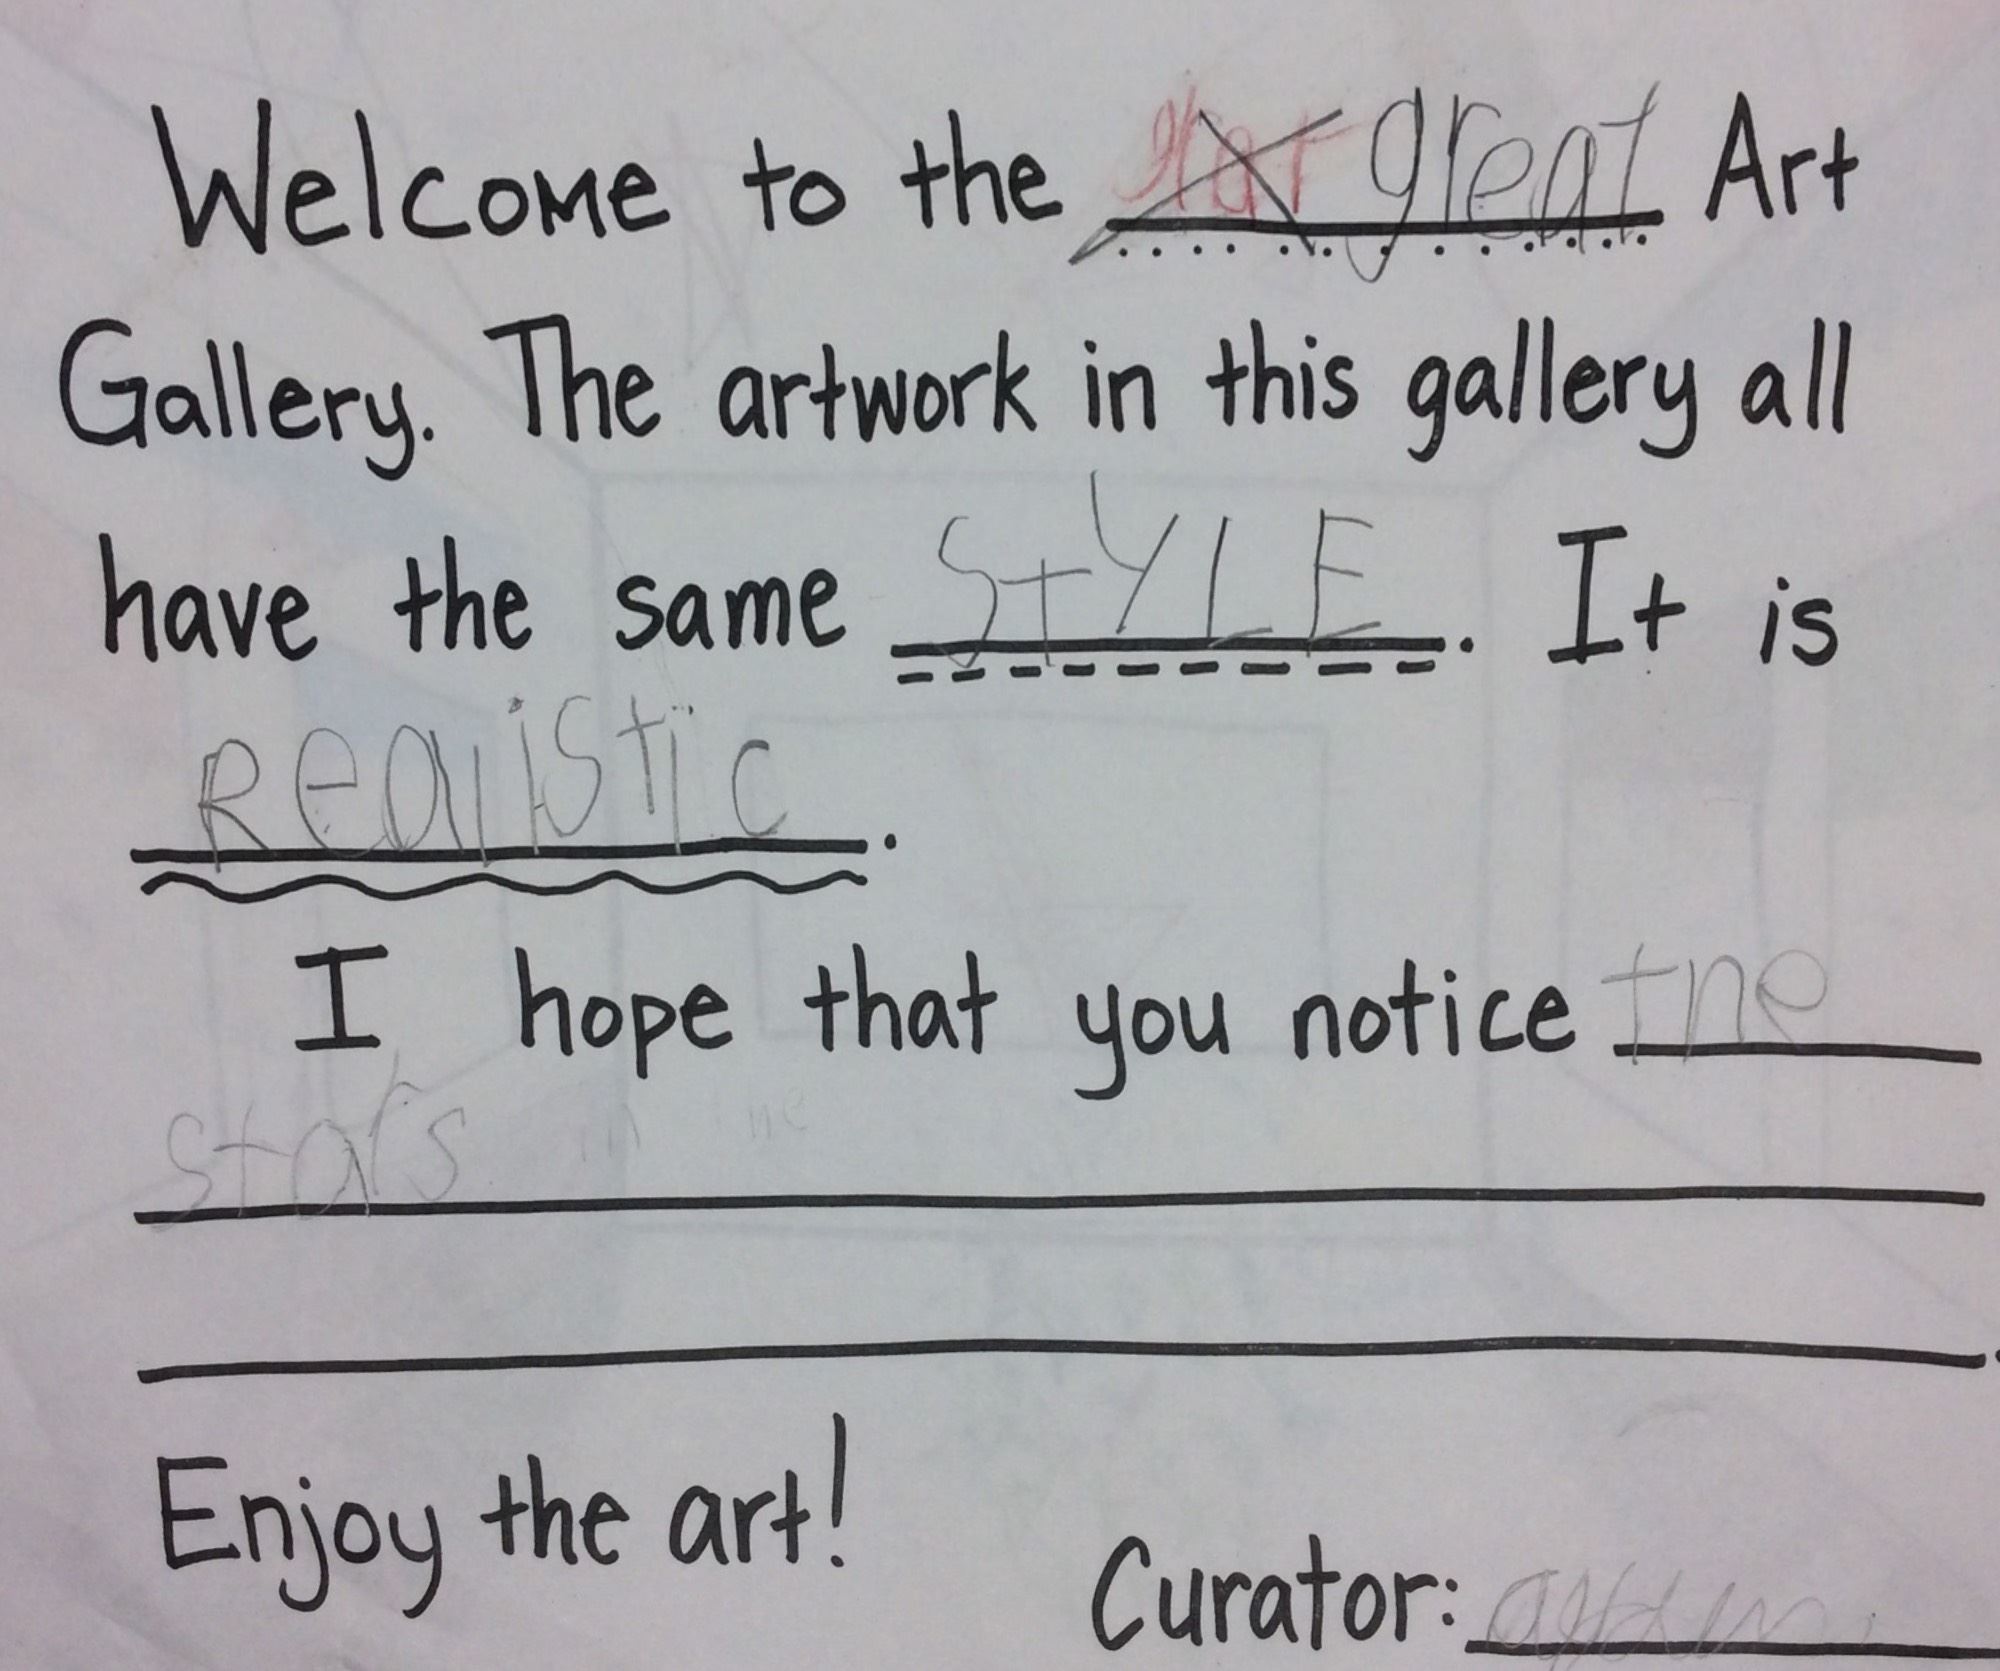 Welcome to the great Art
Gallery. The artwork in this gallery all
have the same StYLE. It is
Realistic.
I hope that you notice the
stars in
Enjoy the art!
Curator: